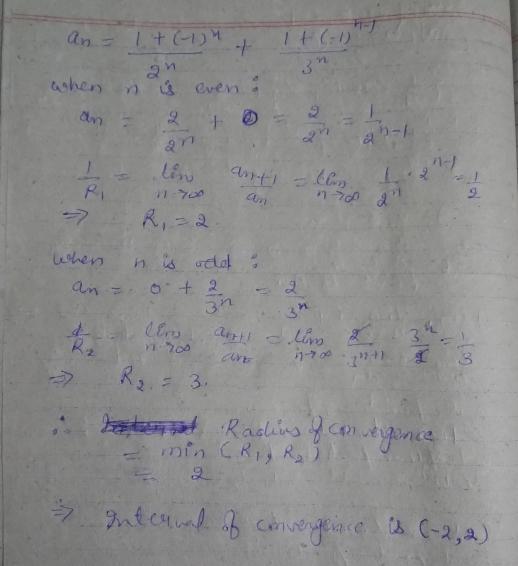 an = (1 + (-1)^n)/2^n + (1 + (-1)^(n-1))/3^n
when n is even :
an = 2/2^n + 0 = 2/2^n = 1/2^(n-1)
1/R₁ = lim n→∞ an+1/an = lim n→∞ 1/2^n · 2^(n-1) = 1/2
⇒ R₁ = 2.
when n is odd :
an = 0 + 2/3^n = 2/3^n
1/R₂ = lim n→∞ an+1/an = lim n→∞ 2/3^(n+1) 3^n/2 = 1/3
⇒ R₂ = 3.
∴ Radius of convergence
= min (R₁, R₂)
= 2
⇒ Interval of convergence is (-2, 2)